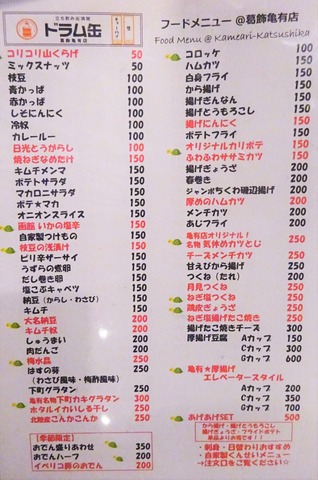 立ち飲み居酒屋
ドラム缶
葛飾亀有店
コリコリ山くらげ 50
ミックスナッツ 50
枝豆 100
青かっぱ 100
赤かっぱ 100
しそにんにく 100
冷奴 100
カレールー 100
日光とうがらし 100
焼ねぎなめたけ 150
キムチメンマ 150
ポテトサラダ 150
マカロニサラダ 150
ポテ★マカ 150
オニオンスライス 150
函館 いかの塩辛 150
自家製つけもの 150
枝豆の浅漬け 150
ピリ辛ザーサイ 150
うずらの煮卵 150
だし巻き卵 150
塩こぶキャベツ 150
納豆(からし・わさび) 150
キムチ 150
大名納豆 200
キムチ奴 200
しゅうまい 200
肉だんご 200
梅水晶 250
はすの芽 250
(わさび風味・梅酢風味)
下町グラタン 250
亀有名物下町カキグラタン 300
ホタルイカいしる干し 250
北陸産こんかこんか 250
【季節限定】
おでん盛りあわせ 350
おでんハーフ 200
イベリコ豚のおでん 200
フードメニュー @葛飾亀有店
Food Menu @ Kameari-Katsushika
コロッケ 100
ハムカツ 100
白身フライ 100
から揚げ 150
揚げぎんなん 150
揚げとうもろこし 150
揚げにんにく 150
ポテトフライ 150
オリジナルカリポテ 150
ふわふわササミカツ 150
揚げぎょうざ 200
春巻き 200
ジャンボちくわ磯辺揚げ 200
厚めのハムカツ 200
メンチカツ 200
あじフライ 200
亀有店オリジナル!
名物 気休めカツとじ 250
チーズメンチカツ 250
甘えびから揚げ 250
つくね(たれ) 200
月見つくね 250
ねぎ塩つくね 250
鶏皮ぎょうざ 250
ねぎ塩揚げたこ焼き 250
揚げたこ焼きチーズ 300
厚揚げ豆腐 Aカップ 150
Bカップ 150
Cカップ 150
亀有★厚揚げ
エレベータースタイル
Aカップ 200
Cカップ 600
Gカップ 700
あげあげSET 500
から揚げ・揚げとうもろこし
揚げぎょうざ・フライドポテト
単品よりお得です!!
・刺身・日替わりおすすめ
・自家製くんせいメニュー
→注文口をご覧ください☆